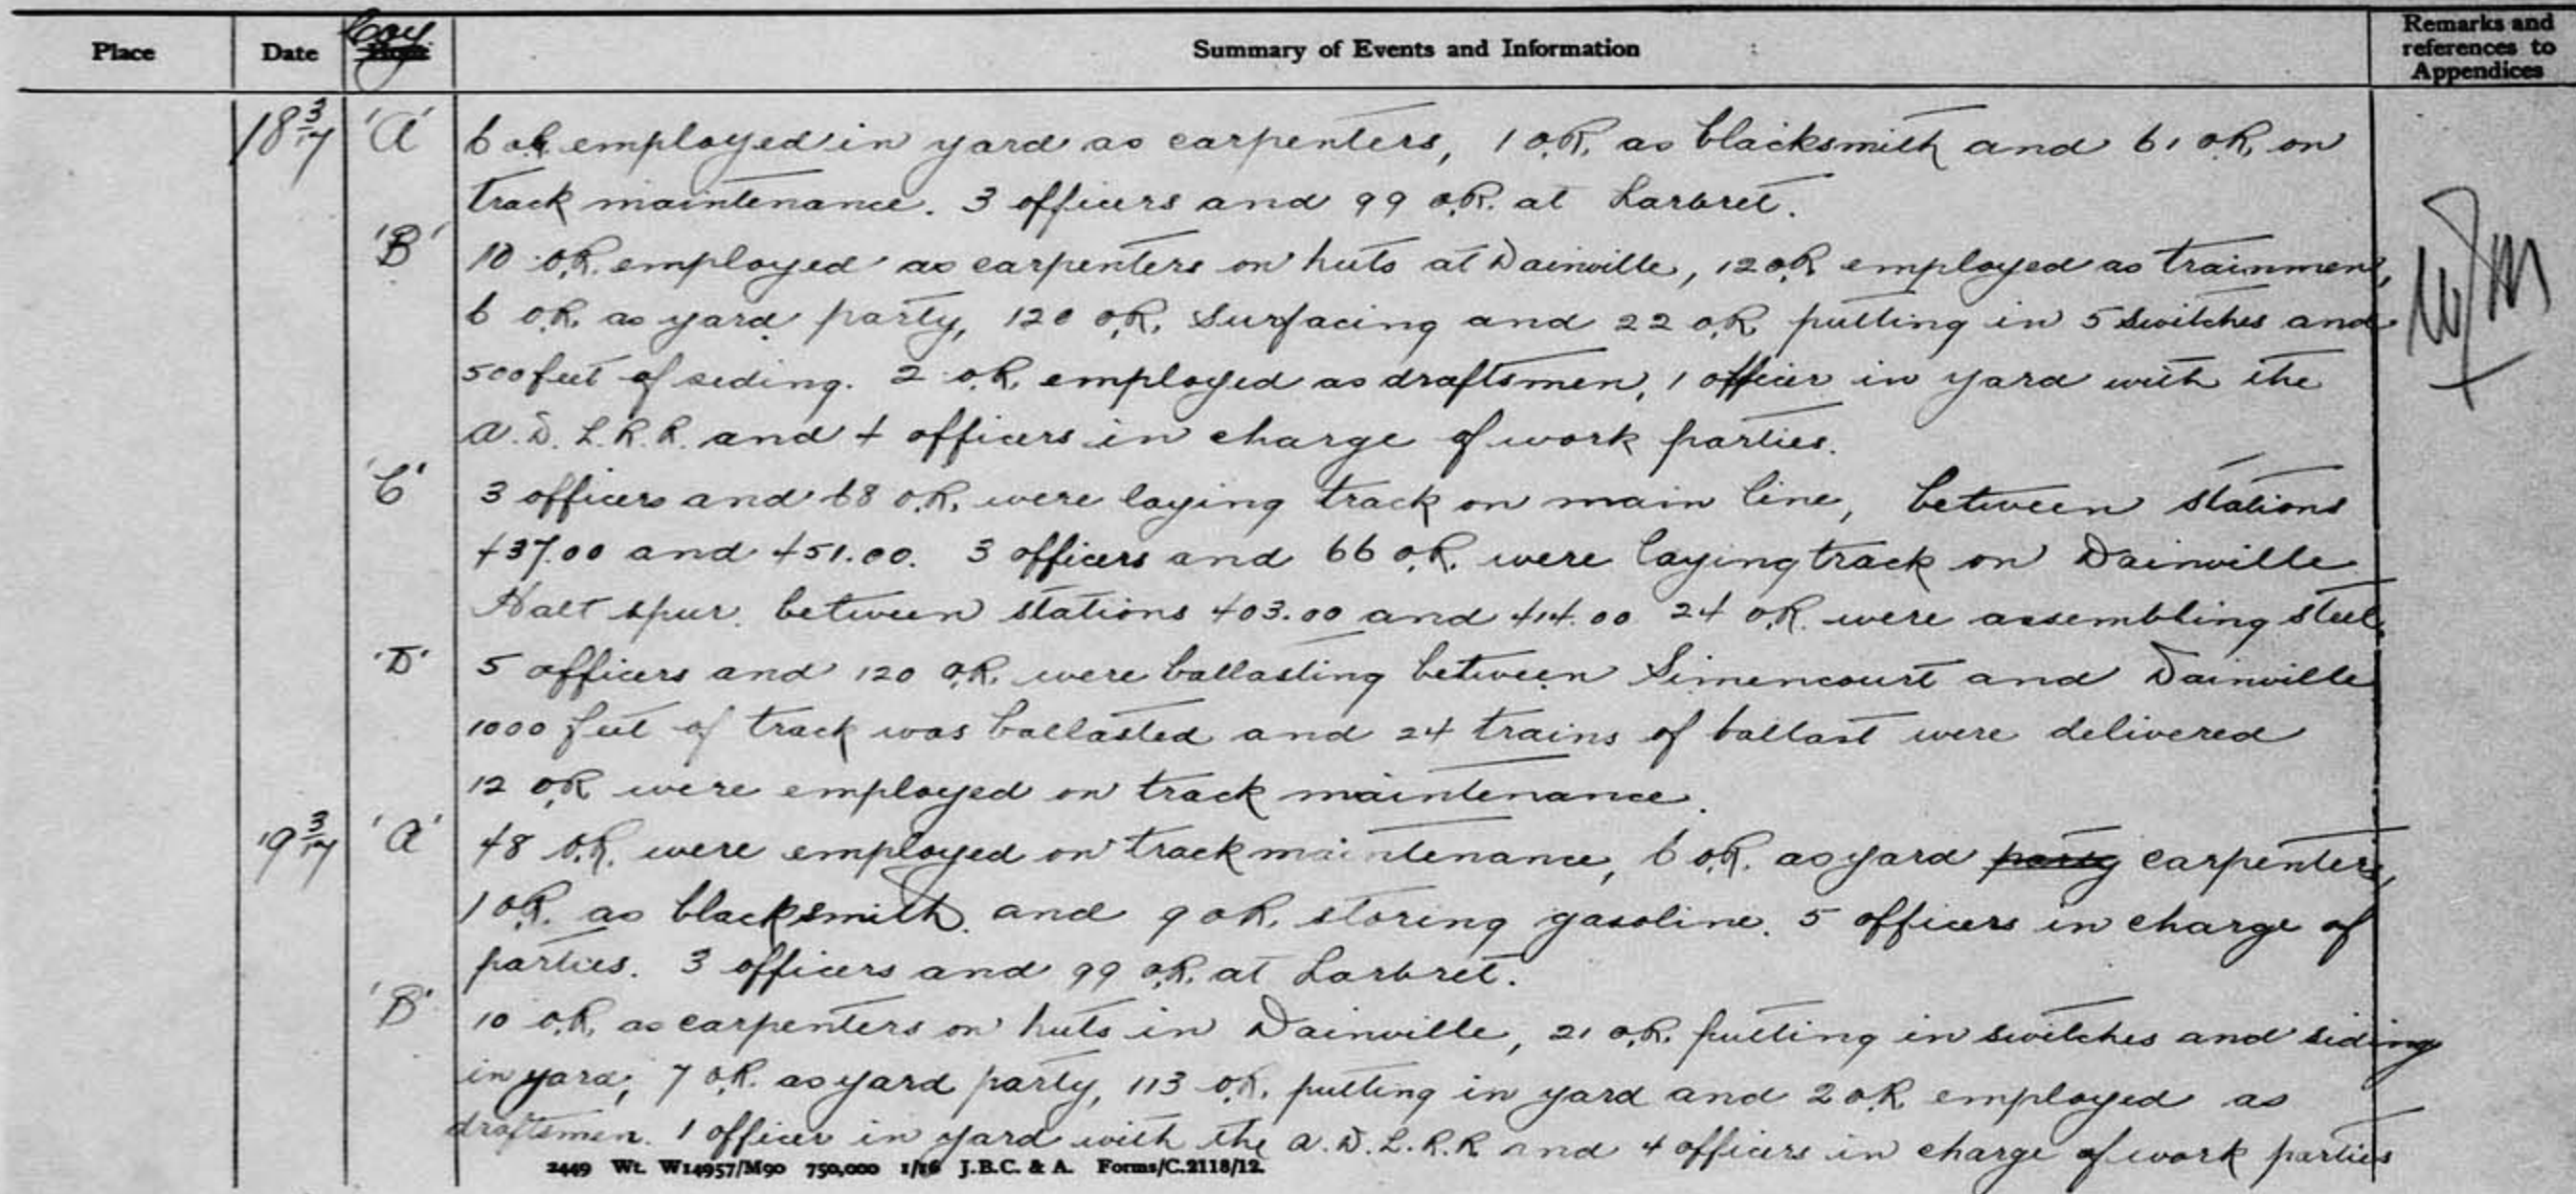 Place Date Coy Hour Summary of Events and Information Remarks and references to Appendices
18 3/17 'A' 6 o.R. employed in yard as carpenters, 1 O.R. as blacksmith and 61 O.R. on
track maintenance. 3 officers and 99 O.R. at Larbret.
'B' 10 O.R. employed as carpenters on huts at Dainville, 12 O.R. employed as trainmen,
6 O.R. as yard party, 120 O.R. Surfacing and 22 O.R. putting in 5 switches and
500 feet of siding. 2 O.R. employed as draftsmen, 1 officer in yard with the
A.D.L.R.R. and 4 officers in charge of work parties.
'C' 3 officers and 68 O.R. were laying track on main line, between stations
437.00 and 451.00. 3 officers and 66 O.R. were laying track on Dainville
Halt spur between stations 403.00 and 414.00 24 O.R. were assembling steel.
'D' 5 officers and 120 O.R. were ballasting between Simencourt and Dainville
1000 feet of track was ballasted and 24 trains of ballast were delivered
12 O.R. were employed on track maintenance.
19 3/17 'A' 48 O.R. were employed on track maintenance, 6 O.R. as yard party carpenters,
1 O.R. as blacksmith and 9 O.R. storing gasoline. 5 officers in charge of
parties. 3 officers and 99 O.R. at Larbret.
'B' 10 O.R. as carpenters on huts in Dainville, 21 O.R. putting in switches and siding
in yard; 7 O.R. as yard party, 113 O.R. putting in yard and 2 O.R. employed as
draftsmen. 1 officer in yard with the A.D.L.R.R and 4 officers in charge of work parties
2449 Wt. W14957/M90 750,000 1/16 J.B.C. & A. Forms/C.2118/12.